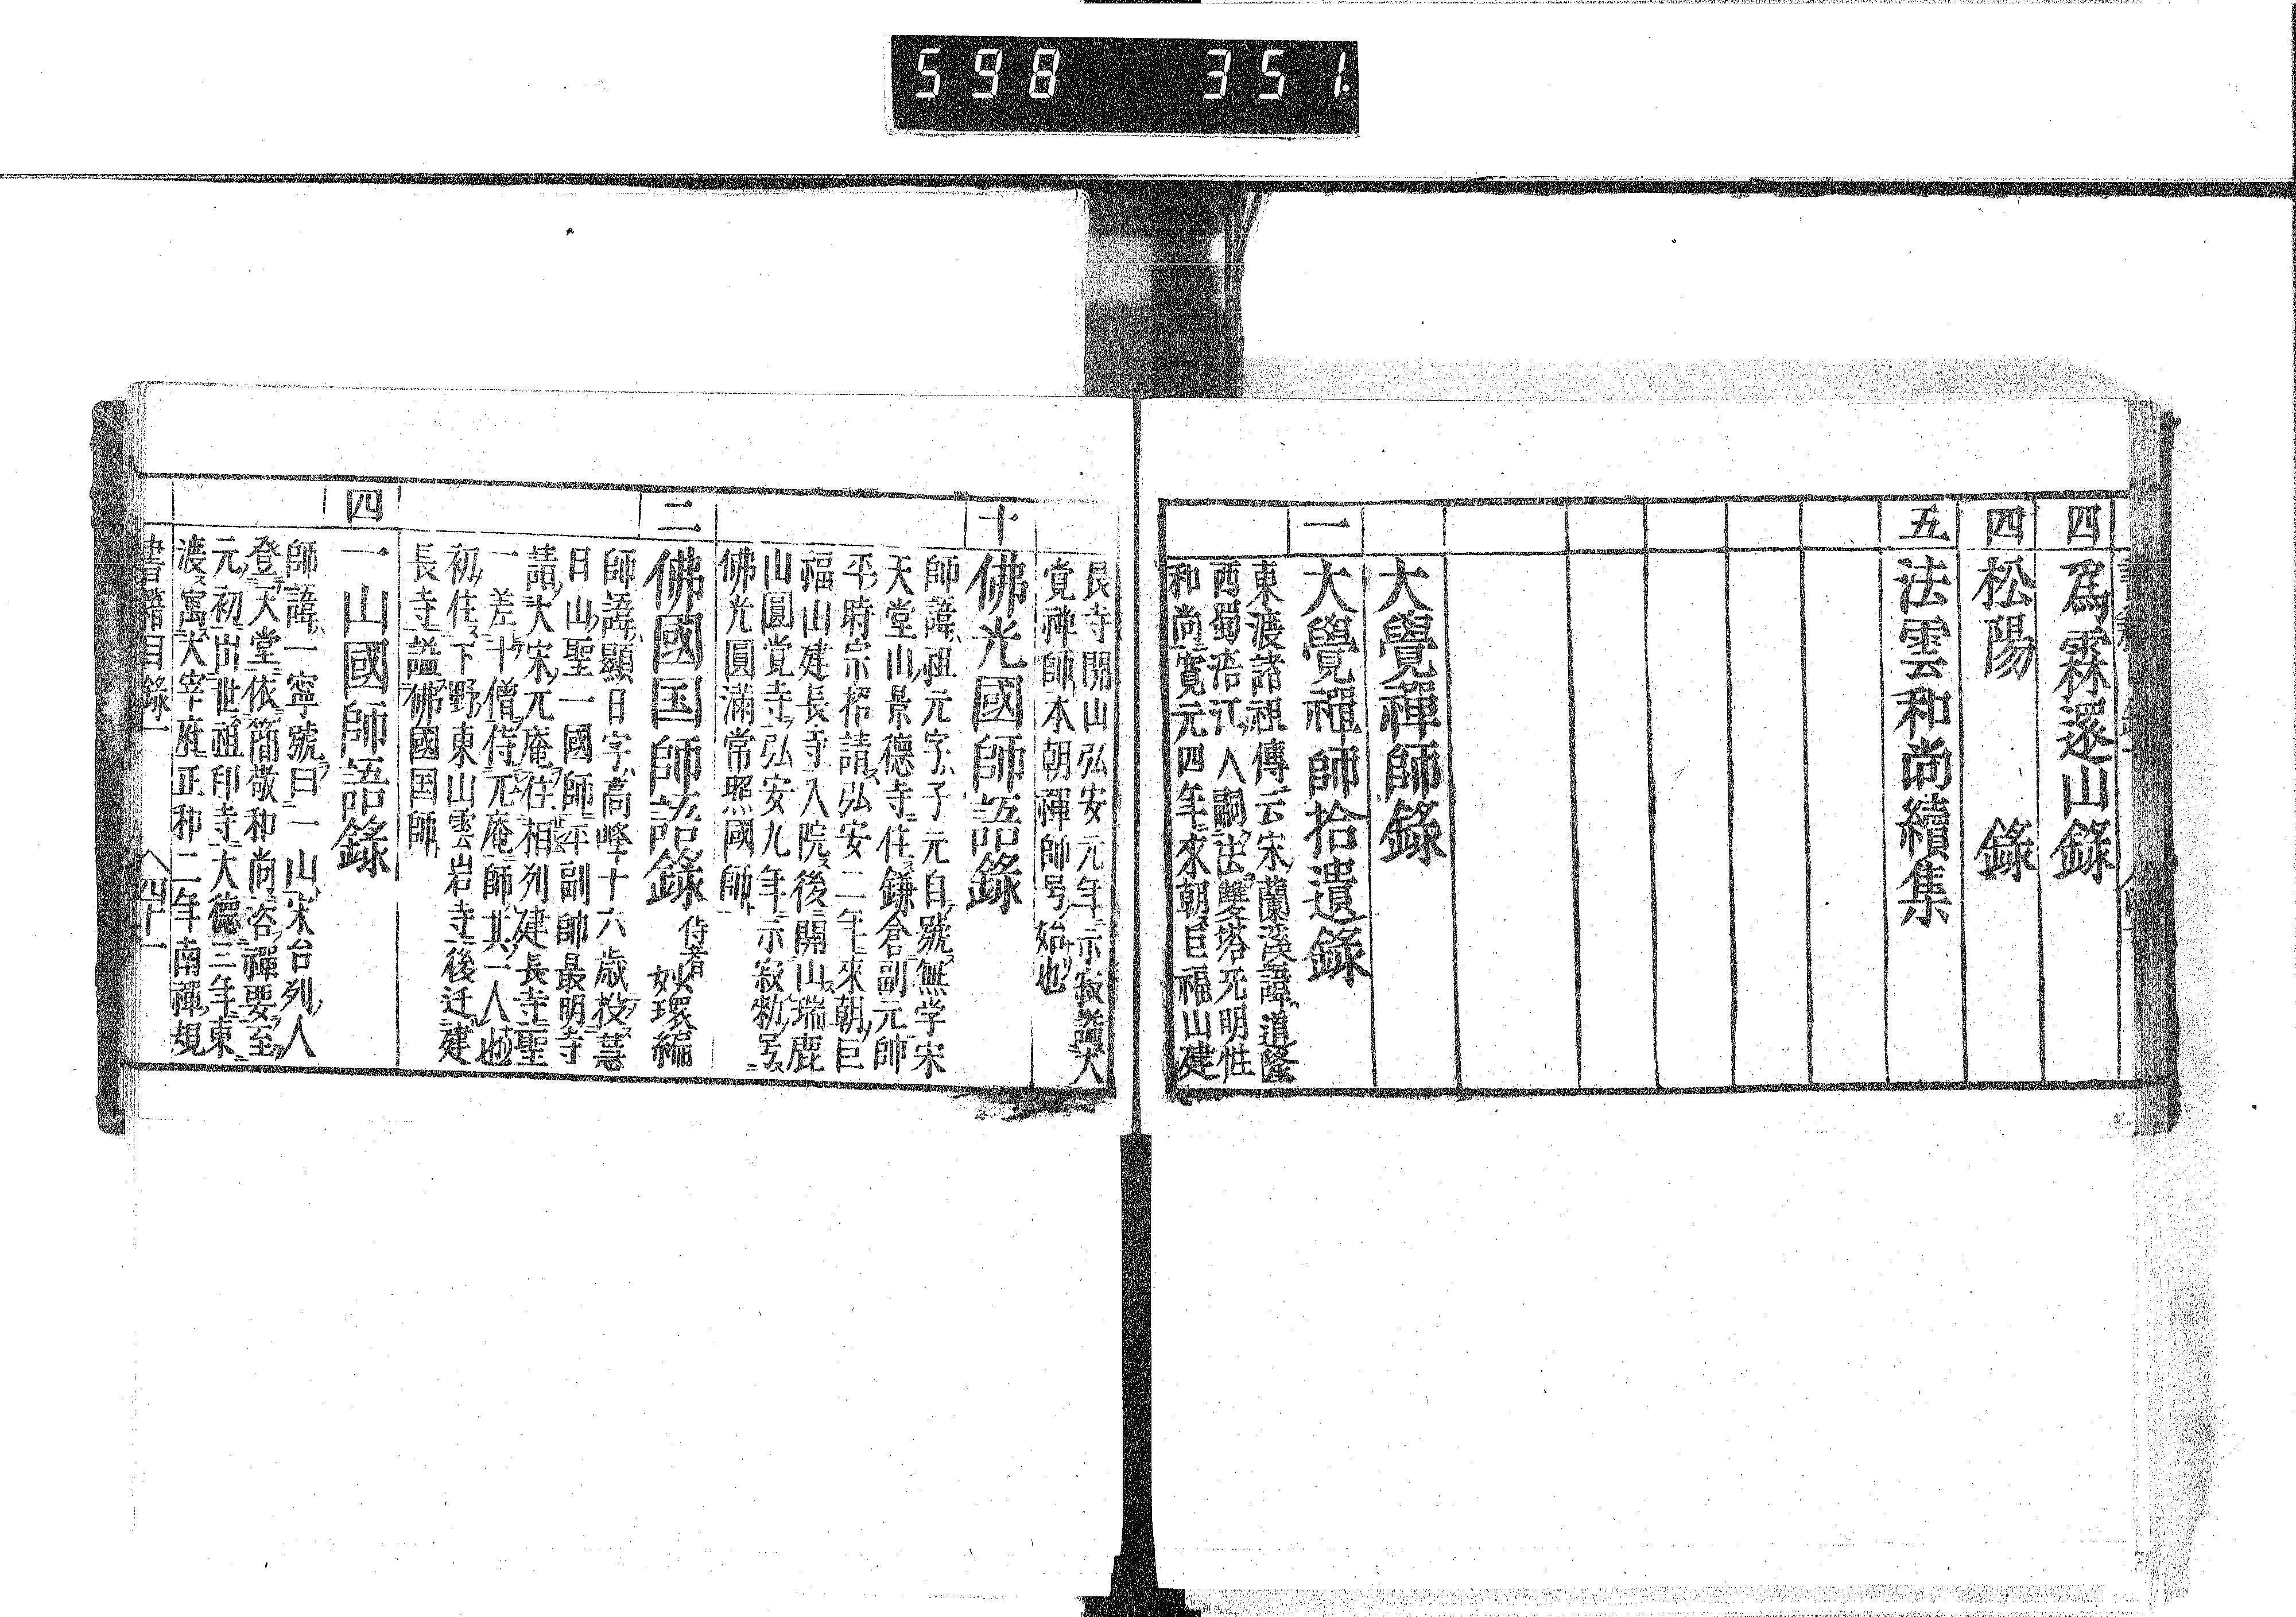 598 351.
四 爲霖還山錄
四 松陽 錄
五 法雲和尚續集
大覺禪師錄
一 大覺禪師拾遺錄
東渡諸祖傳云宋蘭溪諱道隆
西蜀涪江人嗣法雙塔无明性
和尚寛元四年來朝巨福山建
長寺開山弘安元年示寂謚大
覚禅師本朝禪師号始也
十 佛光國師語錄
師諱祖元字子元自號無学宋
天堂山景德寺住鎌倉副元帥
平時宗招請弘安二年來朝巨
福山建長寺入院後開山瑞鹿
山圓覚寺弘安九年示寂勅号
佛光圓滿常照國師
二 佛國国師語錄 侍者妙環編
師諱顯日字高峰十六歳投慧
日山聖一國師平副帥最明寺
請大宋元庵住相列建長寺聖
一差十僧侍元庵師其一人也
初住下野東山雲岩寺後迁建
長寺謚佛國国師
四 一山國師語錄
師諱一寧號曰一山宋台列人
登天堂依簡敬和尚咨禪要至
元初出世祖印寺大德三年東
渡寓大宰府正和二年南禪規
書籍目錄一 四十一